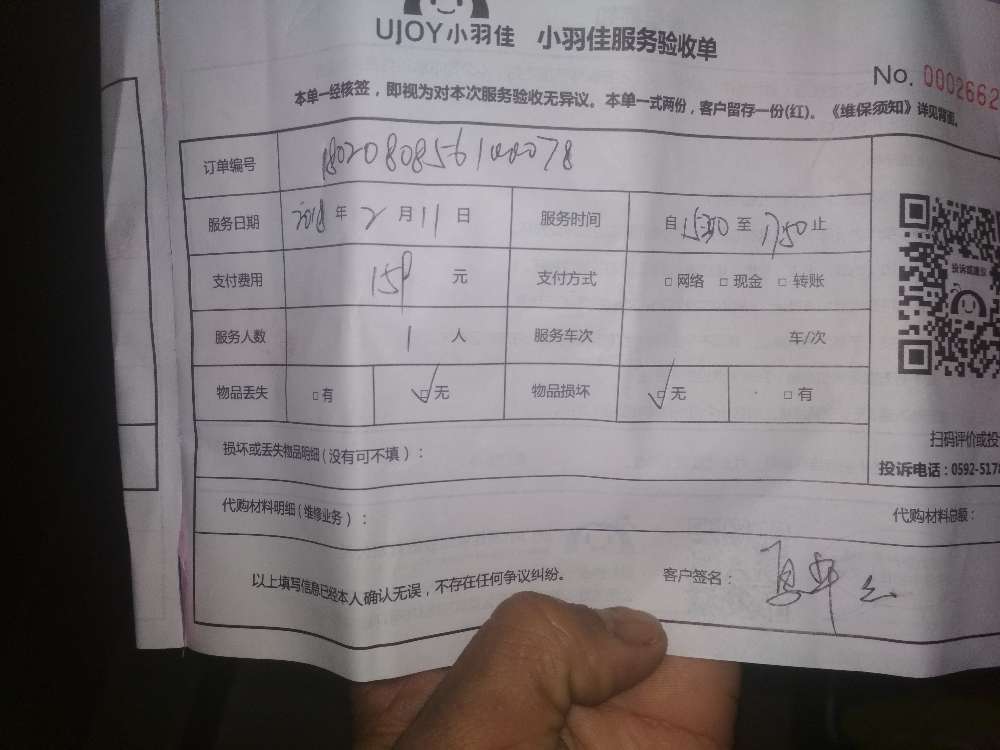 UJOY小羽佳 小羽佳服务验收单
No. 0002662
本单一经核签，即视为对本次服务验收无异议。本单一式两份，客户留存一份(红)。《维保须知》详见背面。
订单编号 18020808561000078
服务日期 2018 年 2 月 11 日 服务时间 自 15:30 至 17:50 止
支付费用 159 元 支付方式 □ 网络 □ 现金 □ 转账
服务人数 1 人 服务车次 车/次
物品丢失 □ 有 ☑ 无 物品损坏 ☑ 无 □ 有
投诉或建议
扫码评价或投
投诉电话：0592-5178
损坏或丢失物品明细（没有可不填）：
代购材料明细（维修业务）： 代购材料总额：
以上填写信息已经本人确认无误，不存在任何争议纠纷。 客户签名：